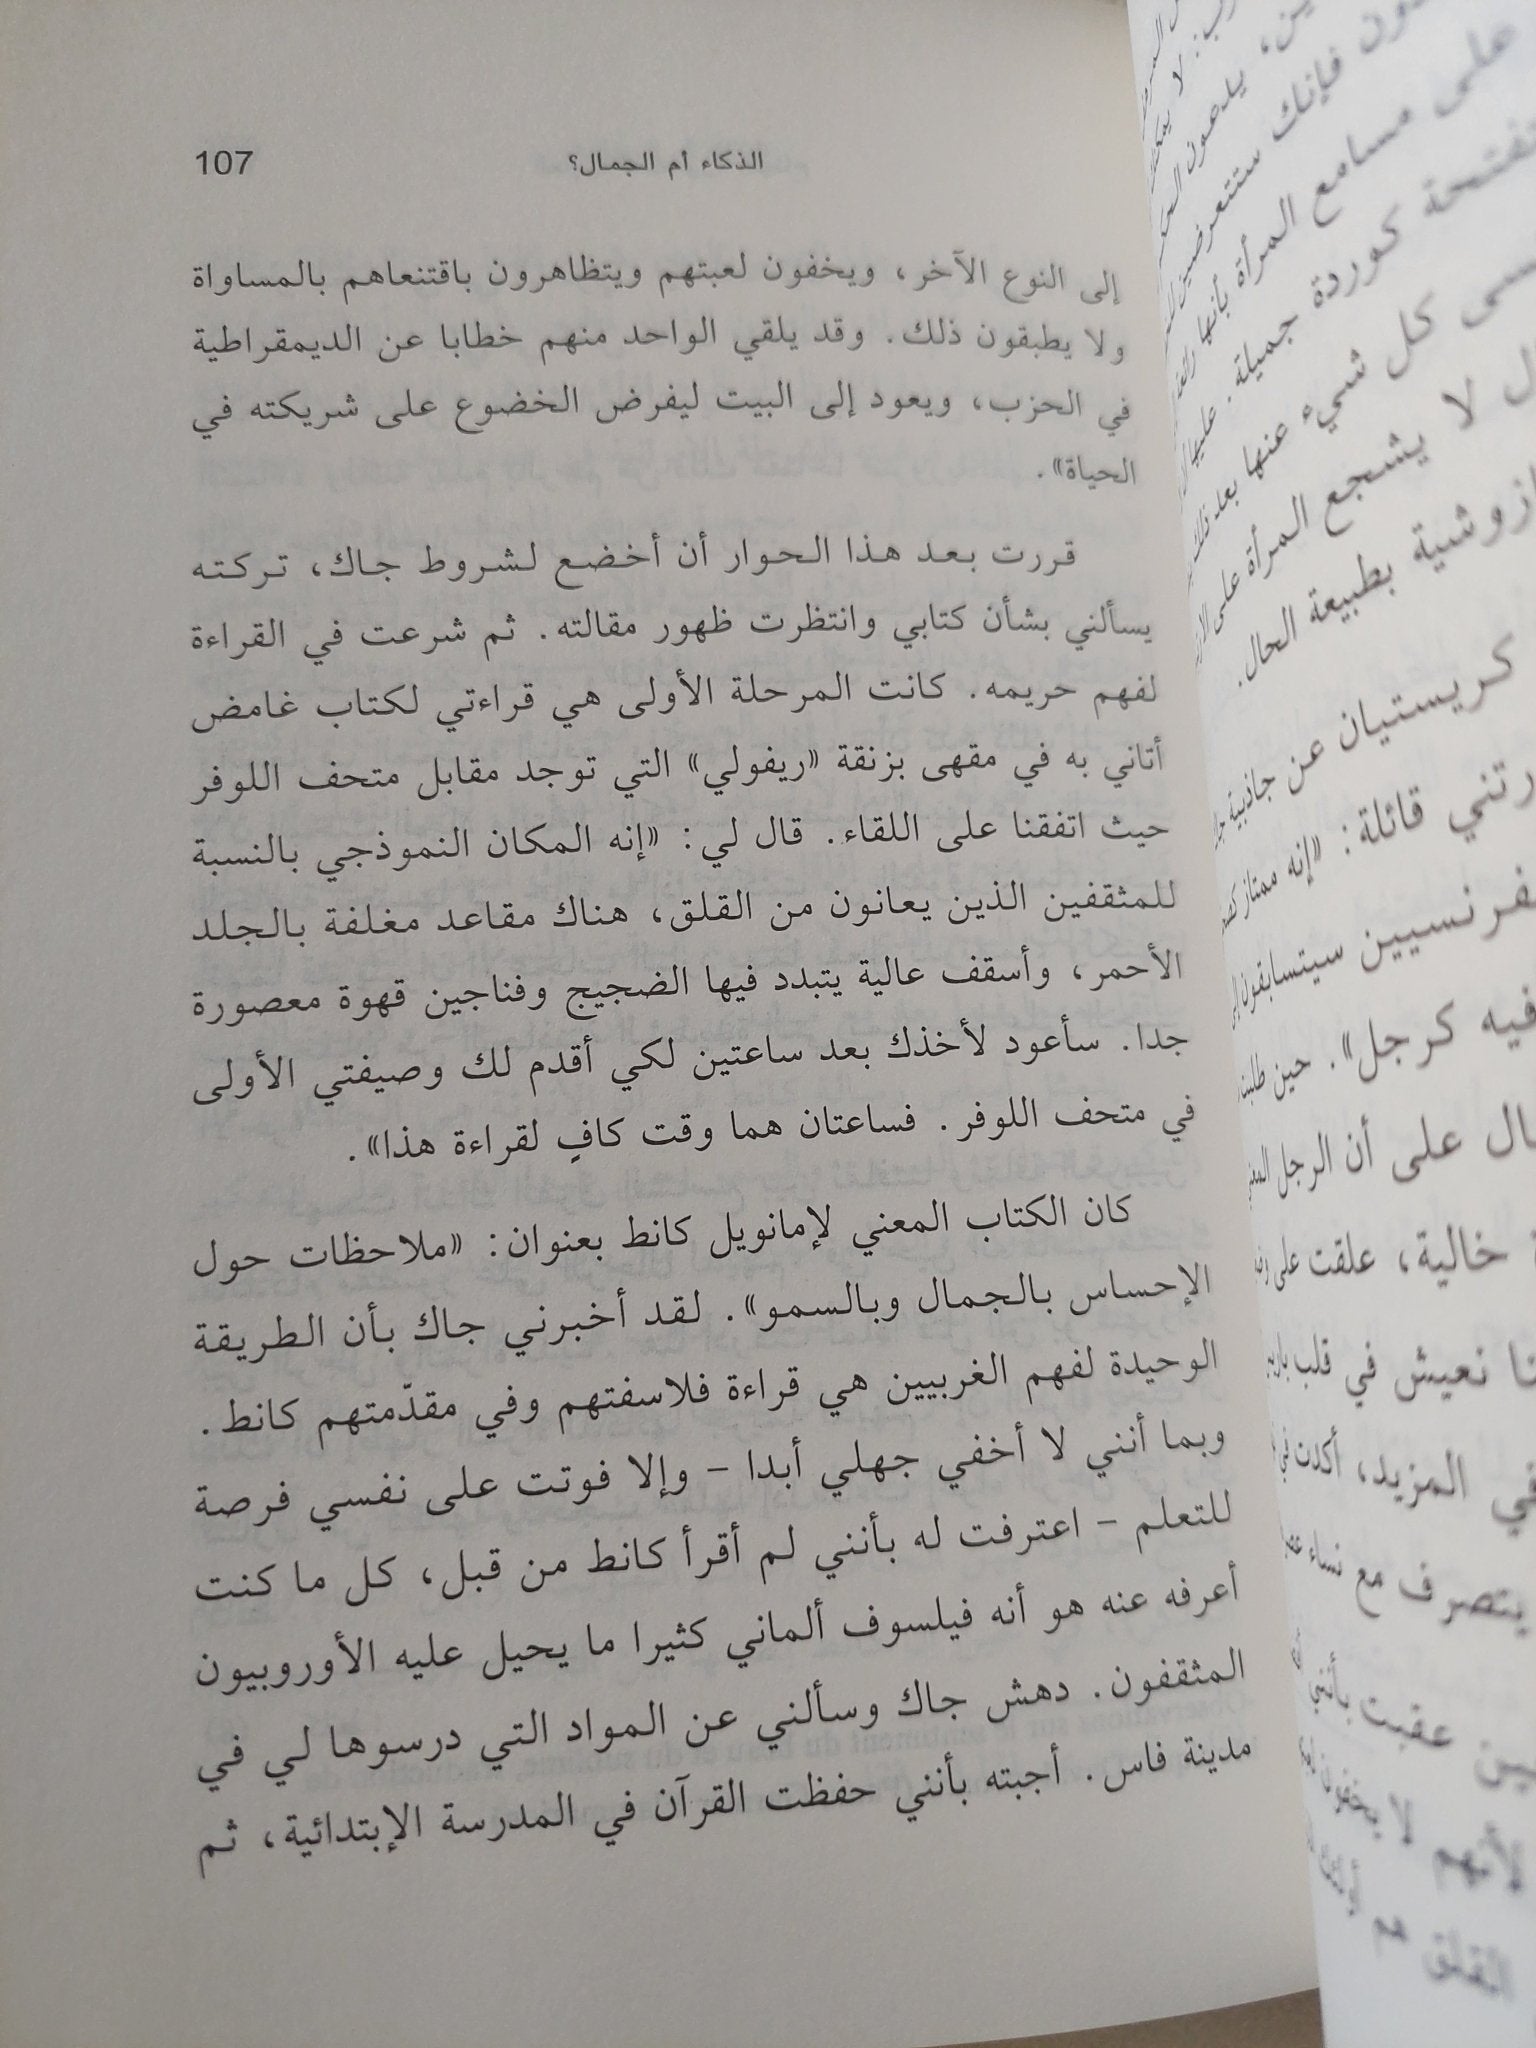 الذكاء أم الجمال؟
107
إلى النوع الآخر، ويخفون لعبتهم ويتظاهرون باقتناعاهم بالمساواة
ولا يطبقون ذلك. وقد يلقي الواحد منهم خطابا عن الديمقراطية
في الحزب، ويعود إلى البيت ليفرض الخضوع على شريكته في
الحياة».
قررت بعد هذا الحوار أن أخضع لشروط جاك، تركته
يسألني بشأن كتابي وانتظرت ظهور مقالته. ثم شرعت في القراءة
لفهم حريمه. كانت المرحلة الأولى هي قراءتي لكتاب غامض
أتاني به في مقهى بزنقة «ريفولي» التي توجد مقابل متحف اللوفر
حيث اتفقنا على اللقاء. قال لي: «إنه المكان النموذجي بالنسبة
للمثقفين الذين يعانون من القلق، هناك مقاعد مغلفة بالجلد
الأحمر، وأسقف عالية يتبدد فيها الضجيج وفناجين قهوة معصورة
جدا. سأعود لأخذك بعد ساعتين لكي أقدم لك وصيفتي الأولى
في متحف اللوفر. فساعتان هما وقت كافٍ لقراءة هذا».
كان الكتاب المعني لإمانويل كانط بعنوان: «ملاحظات حول
الإحساس بالجمال وبالسمو». لقد أخبرني جاك بأن الطريقة
الوحيدة لفهم الغربيين هي قراءة فلاسفتهم وفي مقدّمتهم كانط.
وبما أنني لا أخفي جهلي أبدا – وإلا فوتت على نفسي فرصة
للتعلم – اعترفت له بأنني لم أقرأ كانط من قبل، كل ما كنت
أعرفه عنه هو أنه فيلسوف ألماني كثيرا ما يحيل عليه الأوروبيون
المثقفون. دهش جاك وسألني عن المواد التي درسوها لي في
مدينة فاس. أجبته بأنني حفظت القرآن في المدرسة الإبتدائية، ثم
فإنك ستتعرضين
على مسامع المرأة بأنها
كوردة جميلة. عليها
كل شيء عنها بعد ذلك
لا يشجع المرأة على
بطبيعة الحال.
كريستيان عن جاذبية
قائلة: «إنه ممتاز
سيتسابقون
فيه كرجل». حين
على أن الرجل
خالية، علقت على
نعيش في قلب
في المزيد، أكدت
يتصرف مع نساء
عقبت بأنني
لأنهم لا يخفون